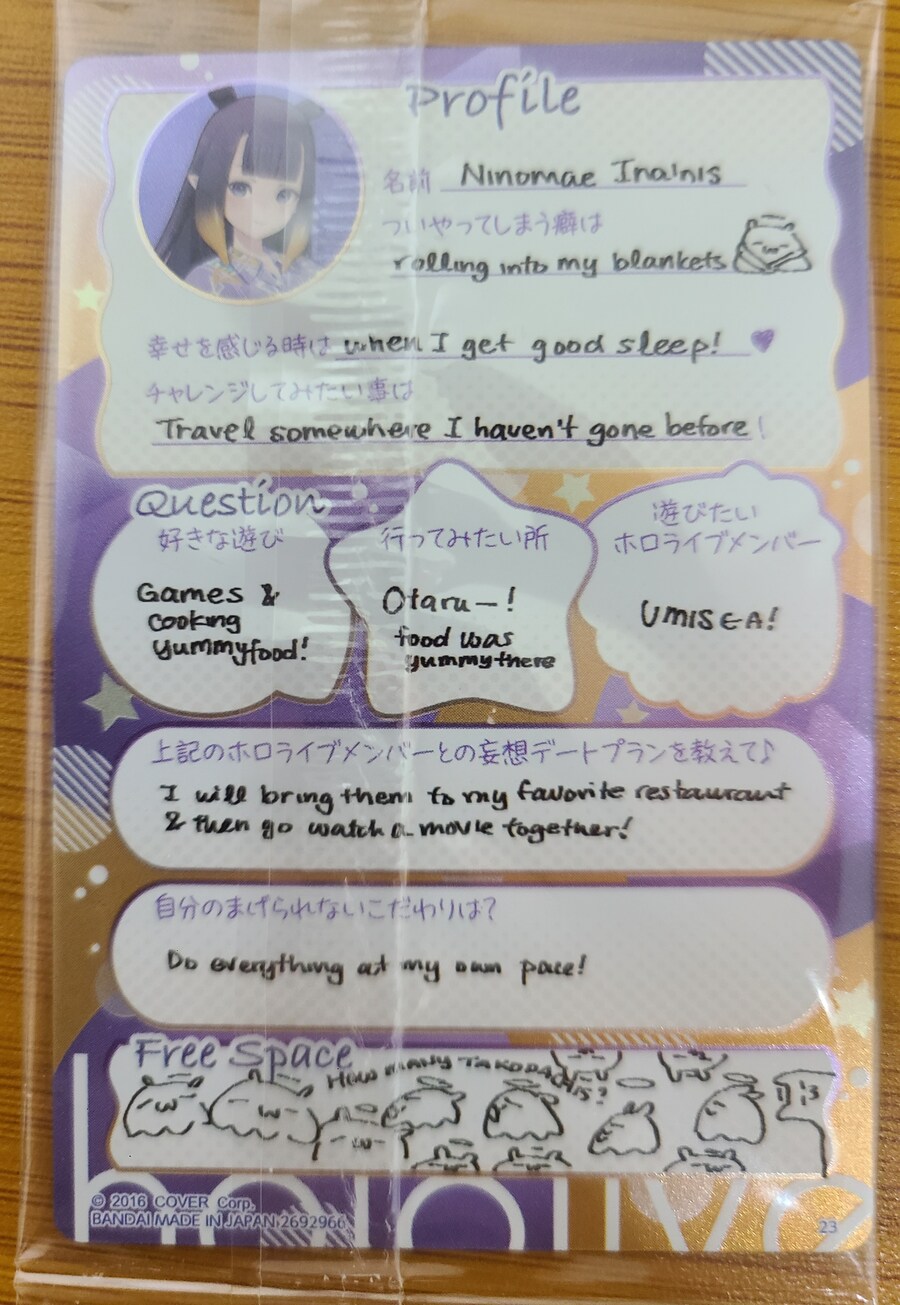 Profile
名前 Ninomae Ina'nis
ついやってしまう癖は
rolling into my blankets
幸せを感じる時は when I get good sleep!
チャレンジしてみたい事は
Travel somewhere I haven't gone before!
Question
好きな遊び
Games &
cooking
yummy food!
行ってみたい所
Otaru-!
food was
yummy there
遊びたい
ホロライブメンバー
UMISEA!
上記のホロライブメンバーとの妄想デートプランを教えて♪
I will bring them to my favorite restaurant
& then go watch a movie together!
自分のまげられないこだわりは?
Do everything at my own pace!
Free Space
How many TAKODACHIS?
© 2016 COVER Corp.
BANDAI MADE IN JAPAN 2692966
23
hololive